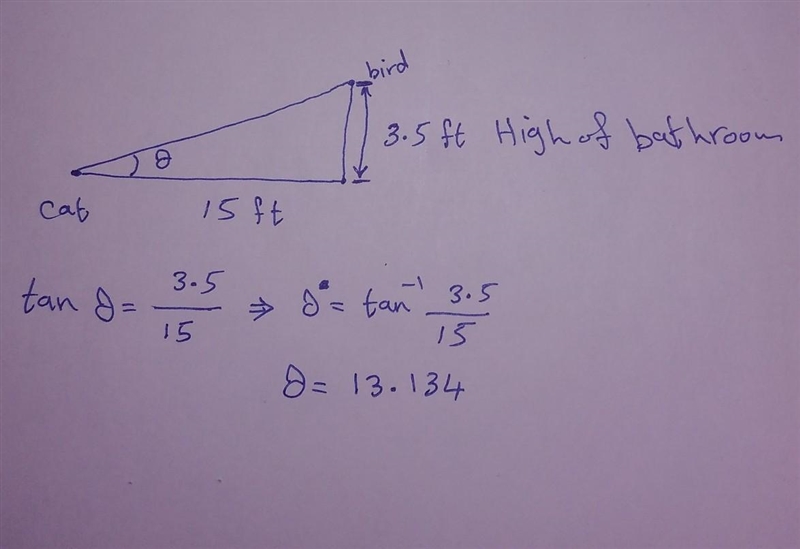 bird
3.5 ft High of bathroom
θ
Cat
15 ft
tan θ = 3.5/15 ⇒ θ° = tan⁻¹ 3.5/15
θ = 13.134